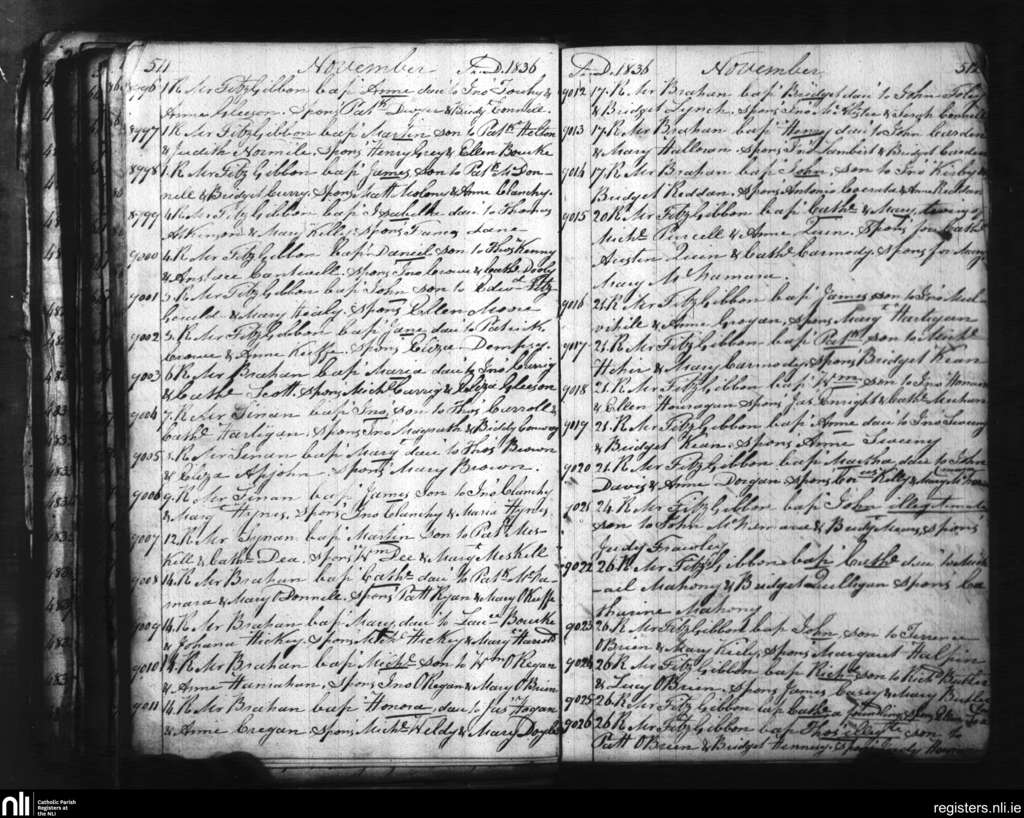 511 November A.D. 1836
8996 1. R. Mr FitzGibbon bap. Anne dau. to Jno
Anne Gleeson. Spons. Patk Dwyer & Biddy
8997 1. R. Mr FitzGibbon bap. Martin son to Patk
& Judith Normile. Spons. Henry Grey & Ellen Bourke
8998 1. R. Mr FitzGibbon bap. James son to Patk McDon-
nell & Bridget Curry. Spons. Matt Molony & Anne Clanchy.
8999 4. R. Mr FitzGibbon bap. Isabella dau. to Thomas
Atkinson & Mary Kelly. Spons. Lane
9000 4. R. Mr FitzGibbon bap. Daniel son to Thos Kenny
& Anstace Spons. Jno & Cathe
9001 5. R. Mr FitzGibbon bap. John son to Edwd Fitz
Gerald & Mary Healy. Spons. Ellen Moore
9002 5. R. Mr FitzGibbon bap. Jane dau. to Patrick
& Anne Spons. Eliza Dempsey.
9003 6. R. Mr Brahan bap. Maria dau. to Jno Carrig
& Cathe Scott. Spons. Michl Carrig & Eliza Gleeson
9004 7. R. Mr Tinan bap. Jno son to Thos Carroll &
Cathe Hartigan. Spons. Jno Magrath & Biddy Conway
9005 R. Mr Tinan bap. Mary dau. to Thos Brown
& Eliza Apjohn. Spons. Mary Brown.
9006 9. R. Mr Tinan bap. James son to Jno Clanchy
& Mary Hynes. Spons. Jno Clanchy & Maria Hynes.
9007 12. R. Mr Tynan bap. Martin son to Patk Mes-
kell & Cathe Dea. Spons. Wm Dee & Mary Meskell
9008 14. R. Mr Brahan bap. Cathe dau. to Patk McNa-
mara & Mary O'Donnell. Spons. Patt Ryan & Mary O'Keeffe
9009 14. R. Mr Brahan bap. Mary dau. to Laurce Bourke
& Johana Hickey. Spons. Hickey & Mary
9010 14. R. Mr Brahan bap. Michl son to Wm O'Regan
& Anne Hanrahan. Spons. Jno O'Regan & Mary O'Brien
9011 14. R. Mr Brahan bap. Honora dau. to Jas Hogan
& Anne Cregan. Spons. Michl & Mary Doyle
A.D. 1836 November 512
9012 17. R. Mr Brahan bap. Bridget dau. to John
& Bridget Lynch. Spons. Jno &
9013 17. R. Mr Brahan bap. Henry to John Carden
& Mary Halloran. Spons. Jno Lambert & Bridget Carden
9014 17. R. Mr Brahan bap. John son to Jno Kirby &
Bridget Reddan. Spons. Antonio & Anne
9015 20. R. Mr FitzGibbon bap. Cathe & Mary, twins of
Michl Purcell & Anne Quin. Spons. for Cathe
Austin Quin & Cathe Carmody. Spons. for Mary
Mary McNamara.
9016 21. R. Mr FitzGibbon bap. James son to Jno Mul-
vihile & Anne Grogan. Spons. Mary Hartigan
9017 21. R. Mr FitzGibbon bap. Patk son to Michl
Hehir & Mary Carmody. Spons. Bridget Kean
9018 21. R. Mr FitzGibbon bap. Wm son to Jno Honan
& Ellen Houragan. Spons. Jas Enright & Cathe Meehan
9019 21. R. Mr FitzGibbon bap. Anne dau. to Jno
& Bridget Kean. Spons. Anne
9020 21. R. Mr FitzGibbon bap. Martha dau. to John
Davis & Anne Dorgan. Spons. Kelly & Mary
9021 24. R. Mr FitzGibbon bap. John illegitimate
son to John McNamara & Biddy Spons.
Judy Frawley
9022 26. R. Mr FitzGibbon bap. Cathe dau. to Mich-
ael Mahony & Bridget Quilligan. Spons. Ca-
tharine Mahony
9023 26. R. Mr FitzGibbon bap. John son to Terrence
O'Brien & Mary Kiely. Spons. Margaret Halpin
9024 26. R. Mr FitzGibbon bap. Richd son to Richd Butler
& Lucy O'Brien. Spons. James Carey & Mary
9025 26. R. Mr FitzGibbon bap. Cathe a foundling. Spons.
9026 26. R. Mr FitzGibbon bap. Thos illegte son to
Patt O'Brien & Bridget Hennessy. Spons. Judy
nli Catholic Parish
Registers at
the NLI
registers.nli.ie